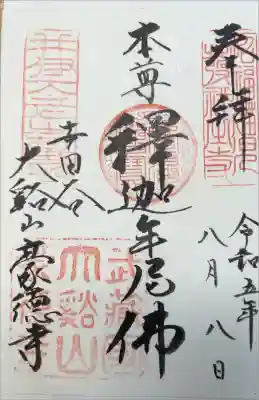 奉拝
令和五年
八月八日
本尊
釋迦牟尼佛
世田谷
大谿山豪德寺
武藏國
大谿山